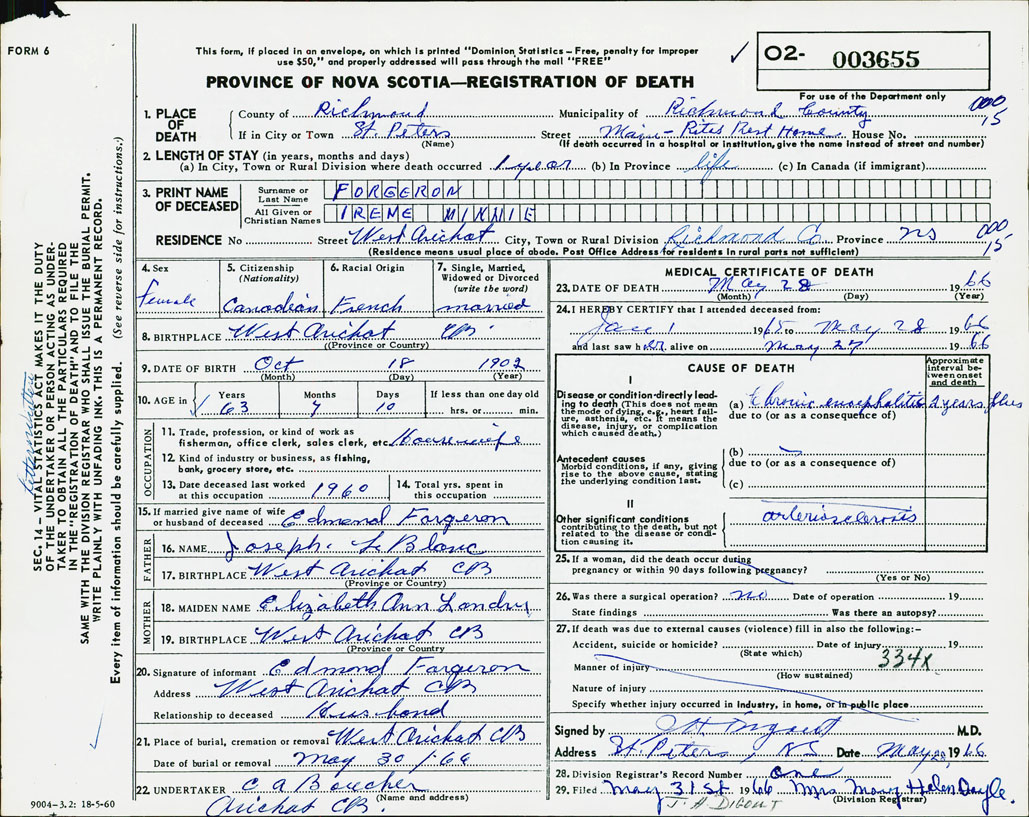 FORM 6
This form, if placed in an envelope, on which is printed "Dominion Statistics – Free, penalty for improper
use $50," and properly addressed will pass through the mail "FREE"
PROVINCE OF NOVA SCOTIA—REGISTRATION OF DEATH
✓ 02- 003655
For use of the Department only
1. PLACE OF DEATH County of Richmond Municipality of Richmond County 000
If in City or Town St. Peters Street Major-Rites Rest Home House No. 15
(Name) (If death occurred in a hospital or institution, give the name instead of street and number)
2. LENGTH OF STAY (in years, months and days)
(a) In City, Town or Rural Division where death occurred 1 year (b) In Province life (c) In Canada (if immigrant)
3. PRINT NAME OF DECEASED
Surname or Last Name FORGERON
All Given or Christian Names IRENE MINNIE
RESIDENCE No Street West Arichat City, Town or Rural Division Richmond Co Province NS 000 15
(Residence means usual place of abode. Post Office Address for residents in rural parts not sufficient)
4. Sex Female
5. Citizenship (Nationality) Canadian
6. Racial Origin French
7. Single, Married, Widowed or Divorced (write the word) married
8. BIRTHPLACE West Arichat CB.
(Province or Country)
9. DATE OF BIRTH Oct 18 1902
(Month) (Day) (Year)
10. AGE in ✓ Years 63 Months 7 Days 10 If less than one day old hrs. or min.
OCCUPATION
11. Trade, profession, or kind of work as
fisherman, office clerk, sales clerk, etc. Housewife
12. Kind of industry or business, as fishing,
bank, grocery store, etc.
13. Date deceased last worked at this occupation 1960
14. Total yrs. spent in this occupation
15. If married give name of wife or husband of deceased Edmond Forgeron
FATHER
16. NAME Joseph LeBlanc
17. BIRTHPLACE West Arichat CB
(Province or Country)
MOTHER
18. MAIDEN NAME Elizabeth Ann Landry
19. BIRTHPLACE West Arichat CB
(Province or Country)
20. Signature of informant Edmond Forgeron
Address West Arichat CB
Relationship to deceased Husband
21. Place of burial, cremation or removal West Arichat CB
Date of burial or removal May 30/66
22. UNDERTAKER C A Boucher
(Name and address)
Arichat CB.
MEDICAL CERTIFICATE OF DEATH
23. DATE OF DEATH May 28 1966
(Month) (Day) (Year)
24. I HEREBY CERTIFY that I attended deceased from:
1 1965 to May 28 1966
and last saw her alive on May 27 1966
CAUSE OF DEATH
Approximate interval between onset and death
I
Disease or condition directly leading to death (This does not mean the mode of dying, e.g., heart failure, asthenia, etc. It means the disease, injury, or complication which caused death.)
(a) Chronic encephalitis 2 years plus
due to (or as a consequence of)
Antecedent causes
Morbid conditions, if any, giving rise to the above cause, stating the underlying condition last.
(b)
due to (or as a consequence of)
(c)
II
Other significant conditions contributing to the death, but not related to the disease or condition causing it.
arteriosclerosis
25. If a woman, did the death occur during
pregnancy or within 90 days following pregnancy?
(Yes or No)
26. Was there a surgical operation? no Date of operation 19
State findings Was there an autopsy?
27. If death was due to external causes (violence) fill in also the following:–
Accident, suicide or homicide? Date of injury 19
(State which) 334X
Manner of injury
(How sustained)
Nature of injury
Specify whether injury occurred in industry, in home, or in public place
Signed by J H Digout M.D.
Address St. Peters, N.S. Date May 28, 1966
28. Division Registrar's Record Number one
29. Filed May 31st 1966 Mrs Mary Helen Doyle.
J. H DIGOUT (Division Registrar)
SEC. 14 – VITAL STATISTICS ACT MAKES IT THE DUTY
OF THE UNDERTAKER OR PERSON ACTING AS UNDER-
TAKER TO OBTAIN ALL THE PARTICULARS REQUIRED
IN THE "REGISTRATION OF DEATH" AND TO FILE THE
SAME WITH THE DIVISION REGISTRAR WHO SHALL ISSUE THE BURIAL PERMIT.
WRITE PLAINLY WITH UNFADING INK. THIS IS A PERMANENT RECORD.
Every item of information should be carefully supplied. (See reverse side for instructions.)
9004-3.2: 18-5-60